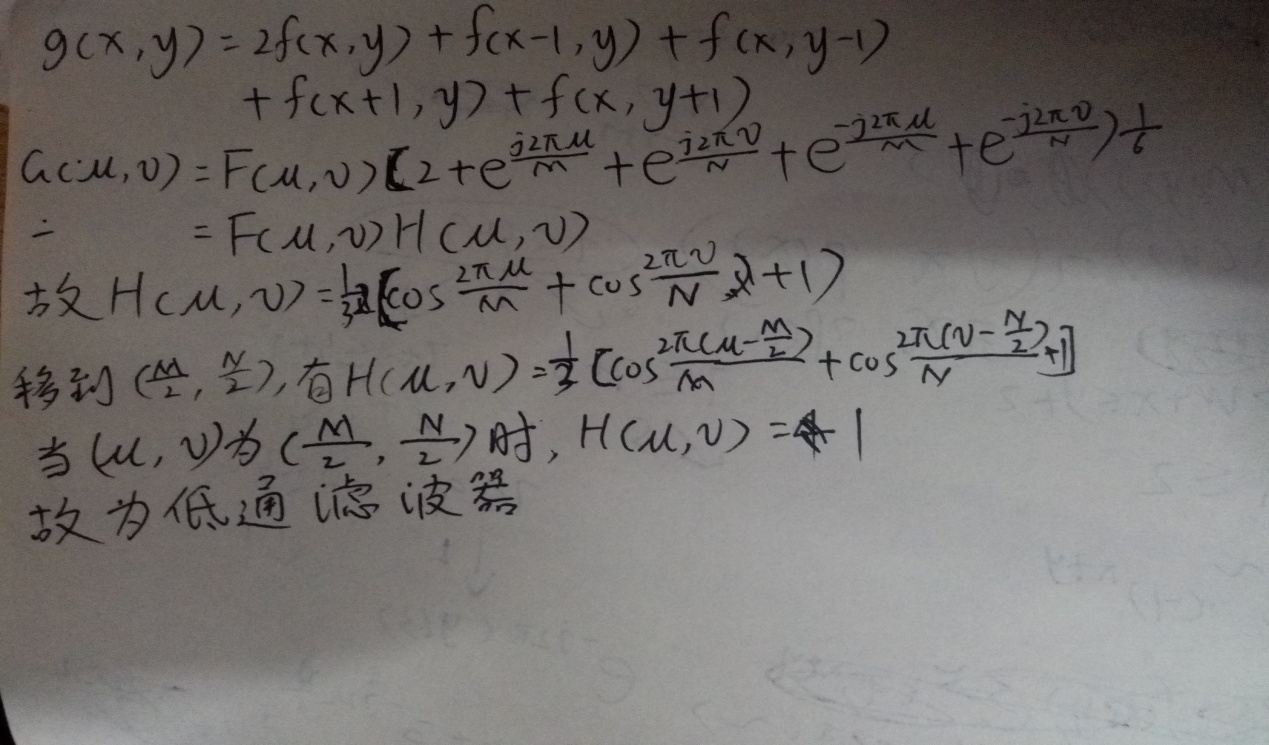 g(x,y)=2f(x,y)+f(x-1,y)+f(x,y-1)
+f(x+1,y)+f(x,y+1)
G(u,v)=F(u,v)[2+e^{\frac{j2πu}{M}}+e^{\frac{j2πv}{N}}+e^{\frac{-j2πu}{M}}+e^{\frac{-j2πv}{N}})\frac{1}{6}
=F(u,v)H(u,v)
故H(u,v)=\frac{1}{3}[cos\frac{2πu}{M}+cos\frac{2πv}{N}+1)
移到(\frac{M}{2},\frac{N}{2}),有H(u,v)=\frac{1}{3}[cos\frac{2π(u-\frac{M}{2})}{M}+cos\frac{2π(v-\frac{N}{2})}{N}+1]
当(u,v)为(\frac{M}{2},\frac{N}{2})时,H(u,v)=1
故为低通滤波器